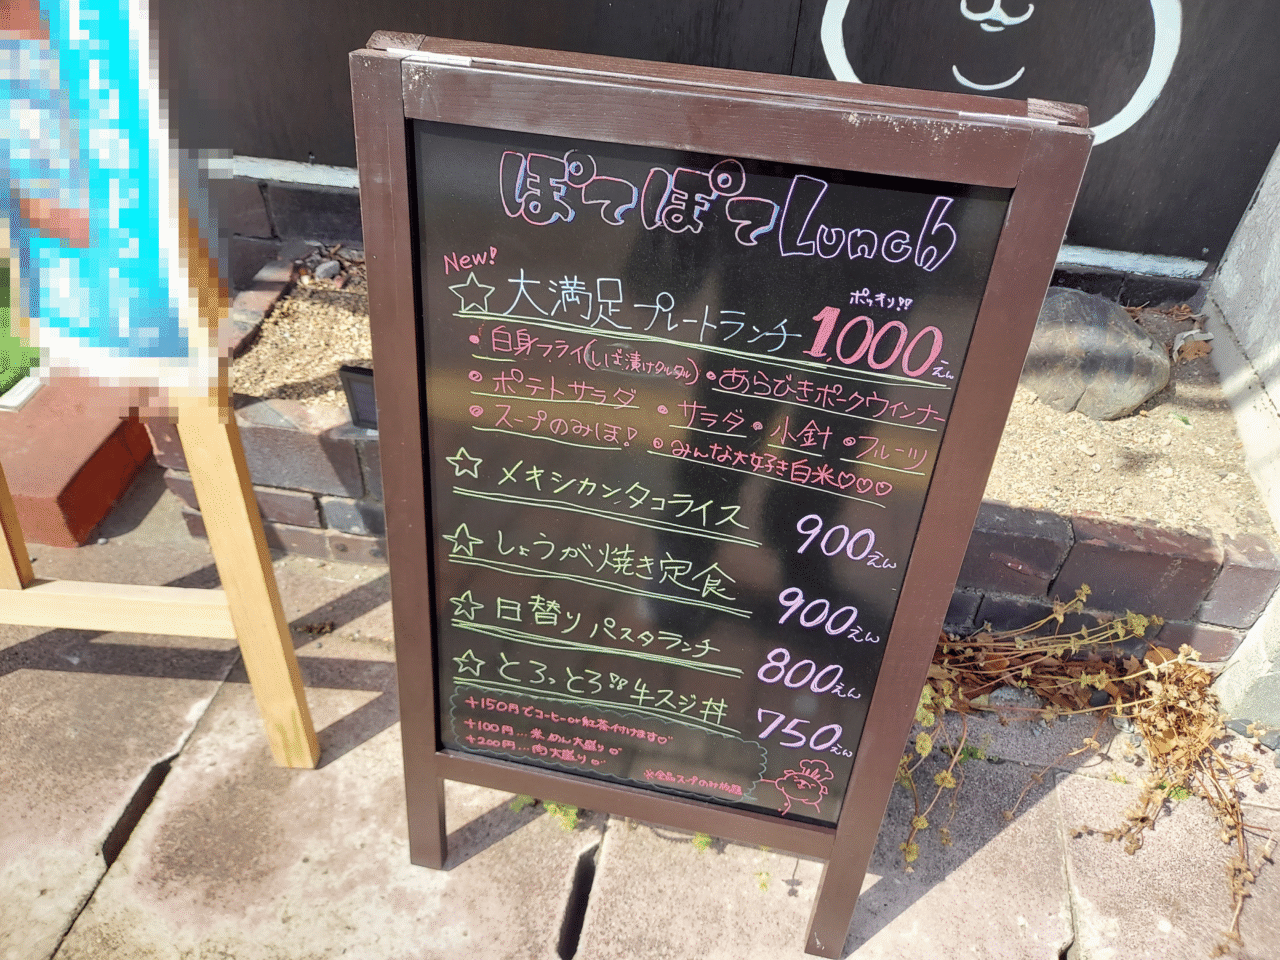 ぽてぽてLunch
New!
☆大満足プレートランチ ポッキリ!! 1,000えん
・白身フライ(いぶり漬けタルタル)・あらびきポークウィンナー
・ポテトサラダ・サラダ・小針・フルーツ
・スープのみほ!・みんな大好き白米♡♡♡
☆メキシカンタコライス 900えん
☆しょうが焼き定食 900えん
☆日替りパスタランチ 800えん
☆とろっとろ!!牛スジ丼 750えん
+150円でコーヒーor紅茶付けます♡
+100円…米、めん大盛り♡
+200円…肉大盛り♡
※全品スープのみ放題